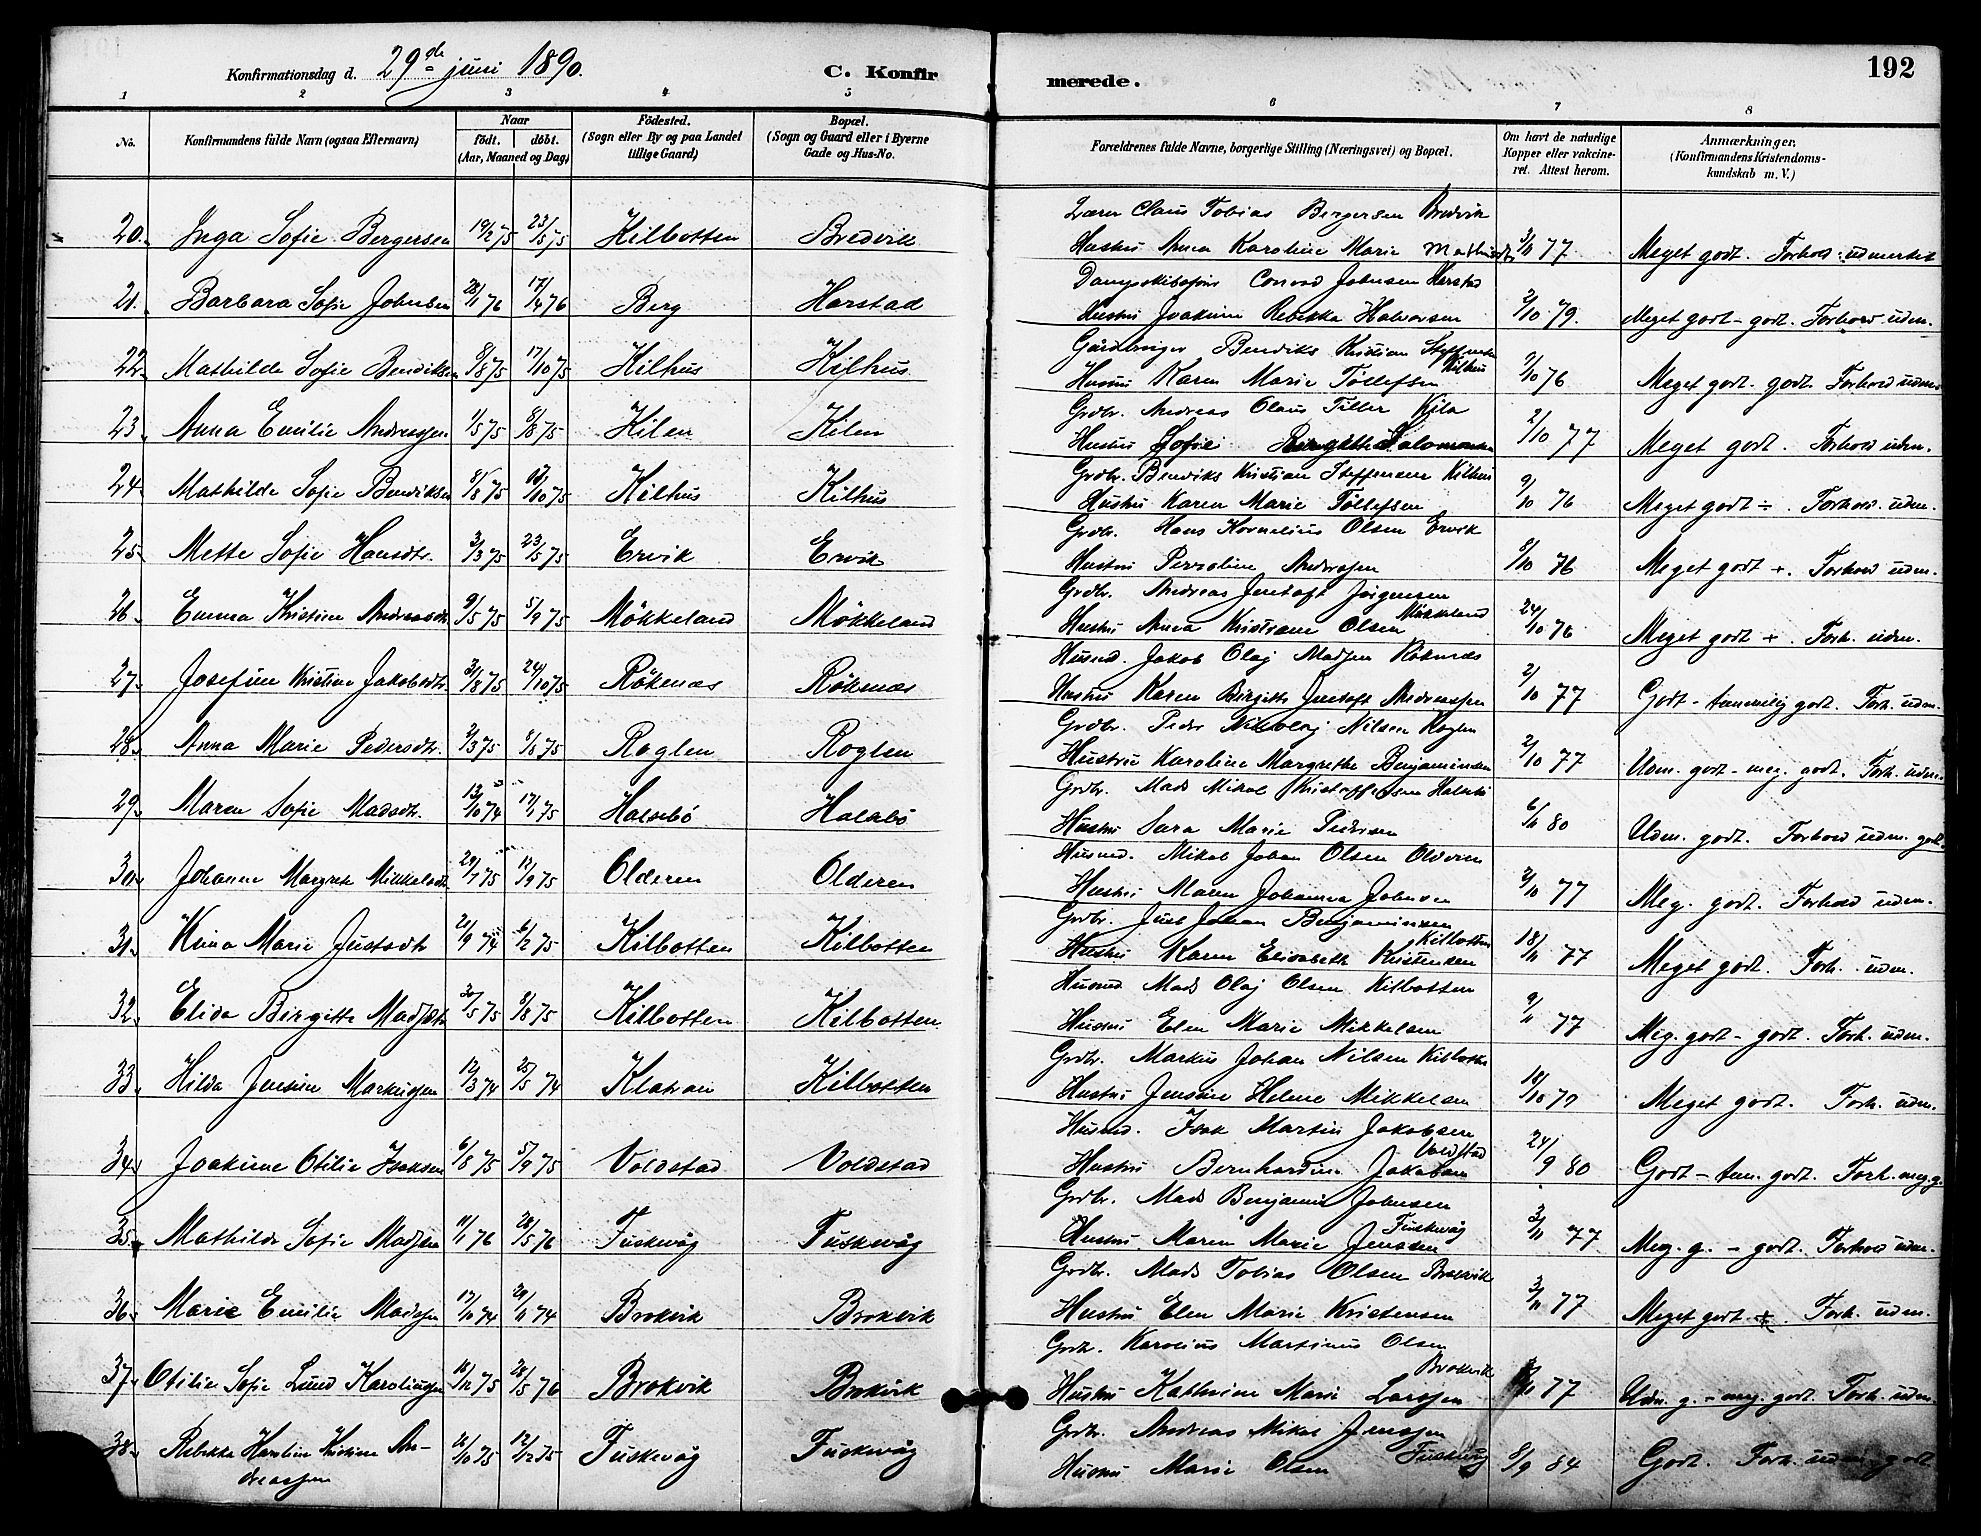 192
Konfirmationsdag d. 29de juni 1890. C. Konfirmerede.
1 2 3 4 5 6 7 8
No. Konfirmandens fulde Navn (ogsaa Efternavn) Naar födt. döbt. (Aar, Maaned og Dag) Födested. (Sogn eller By og paa Landet tillige Gaard) Bopæl. (Sogn og Gaard eller i Byerne Gade og Hus-No. Forældrenes fulde Navne, borgerlige Stilling (Næringsvei) og Bopæl. Om havt de naturlige Kopper eller vakcineret. Attest herom. Anmærkninger. (Konfirmandens Kristendomskundskab m. V.)
Lærer Claus Tobias Bergersen Bredvik
20. Inga Sofie Bergersen 19/2 75 23/5 75 Kilbotten Bredvik Hustru Anna Karoline Marie 3/11 77 Meget godt. Forhold udmerket
Conrad Johnsen Harstad
21. Barbara Sofie Johnsen 28/1 76 17/4 76 Berg Harstad Hustru Joakime Rebekka Halvorsen 2/10 79. Meget godt - godt. Forhold udm.
Gårdbruger Bendiks Kristian Steffensen Kilhus
22. Mathilde Sofie Bendiksen 8/8 75 17/10 75 Kilhus Kilhus Hustru Karen Marie Tollefsen 9/10 76 Meget godt. godt. Forhold udm.
Grdbr. Andreas Olaus Tiller Kila
23. Anna Emilie Andreassen 1/5 75 8/8 75 Kilen Kilen Hustru Sofie Birgitte Salomonsen 2/10 77 Meget godt. Forhold udm.
Grdbr. Bendiks Kristian Steffensen Kilhus
24. Mathilde Sofie Bendiksen 8/8 75 10 75 Kilhus Kilhus Hustru Karen Marie Tollefsen 9/10 76 Meget godt ÷. Forhold udm.
Grdbr. Hans Kornelius Olsen Ervik
25. Mette Sofie Hansdtr. 3/3 75 23/5 75 Ervik Ervik Hustru Andersen 8/10 76 Meget godt +. Forhold udm.
Grdbr. Andreas Jentoft Jørgensen Møkkeland
26. Emma Kristine Andreasdtr 9/5 75 5/9 75 Møkkeland Møkkeland Hustru Anna Kristiane Olsen 24/10 76 Meget godt +. Forh. udm.
Husmd. Jakob Olaj Madsen Røkenæs
27. Josefine Kristine Jakobsdtr. 31/8 75 24/10 75 Røkenæs Røkenæs Hustru Karen Birgitte Jentoft Andreassen 2/10 77 Godt - temmelig godt. Forh. udm.
Grdbr. Peder Nikolaj Nilsen Roglen
28. Anna Marie Pedersdtr. 3 75 75 Roglen Roglen Hustru Karoline Margrethe Benjaminsen 2/10 77 Udm. godt - meg. godt. Forh. udm.
Grdbr. Mads Mikal Kristoffersen Halsebø
29. Maren Sofie Madsdtr. 13/10 74 17/1 75 Halsebø Halsebø Hustru Sara Marie Pedersen 6/11 80 Udm. godt. Forhold udm. godt.
Husmd. Mikal Johan Olsen Olderen
30. Johanne Margrete Mikkelsdtr 29/7 75 12/9 75 Olderen Olderen Hustru Maren Johanna Johnsen 77 Meg. godt. Forhold udm.
Grdbr. Just Johan Benjaminsen Kilbotten
31. Marie Justsdtr 21/9 74 6/2 75 Kilbotten Kilbotten Hustru Karen Elisabeth Kristensen 18/11 77 Meget godt. Forh. udm.
Husmd Mads Olaj Olsen Kilbotten
32. Elida Birgitte 30/5 75 8/8 75 Kilbotten Kilbotten Hustru Elen Marie Mikkelsen 9/11 77 Meg. godt - godt. Forh. udm.
Grdbr. Markus Johan Nilsen Kilbotten
33. Hilda Jensine Markussen 12/3 74 25/5 74 Klatran Kilbotten Hustru Jensine Helene Mikkelsen 18/10 77 Meget godt. Forh. udm.
Husmd. Isak Martin Jakobsen Voldstad
34. Joakime Otilie Isaksen 6/8 75 5/9 75 Voldstad Voldstad Hustru Bernhardine Jakobsen 24/9 80 Godt - tem. godt. Forh. meg. g.
Grdbr. Mads Benjamin Johnsen Fuskevåg
35. Mathilde Sofie Madsen 11/1 76 28/5 76 Fuskevåg Fuskevåg Hustru Maren Marie Jenssen 3/11 77 Meg. g. - godt. Forhold udm.
Grdbr. Mads Tobias Olsen Brokvik
36. Marie Emilie Madsen 17/10 74 29/11 74 Brokvik Brokvik Hustru Elen Marie Kristensen 3/11 77 Meget godt +. Forh. udm.
Grdbr. Karolius Martinus Olsen Brokvik
37. Otilie Sofie Lund Karoliussen 18/12 75 28/5 76 Brokvik Brokvik Hustru Kathrine Marie Larssen 77 Udm. g. - meg. godt. Forh. udm.
Grdbr. Andreas Mikal Jenssen Fuskevåg
38. Rebekka Kristine An- 10 75 12/12 75 Fuskevåg Fuskevåg Hustru Marie Olsen 8/9 84 Godt. Forh. udm. godt
dreassen